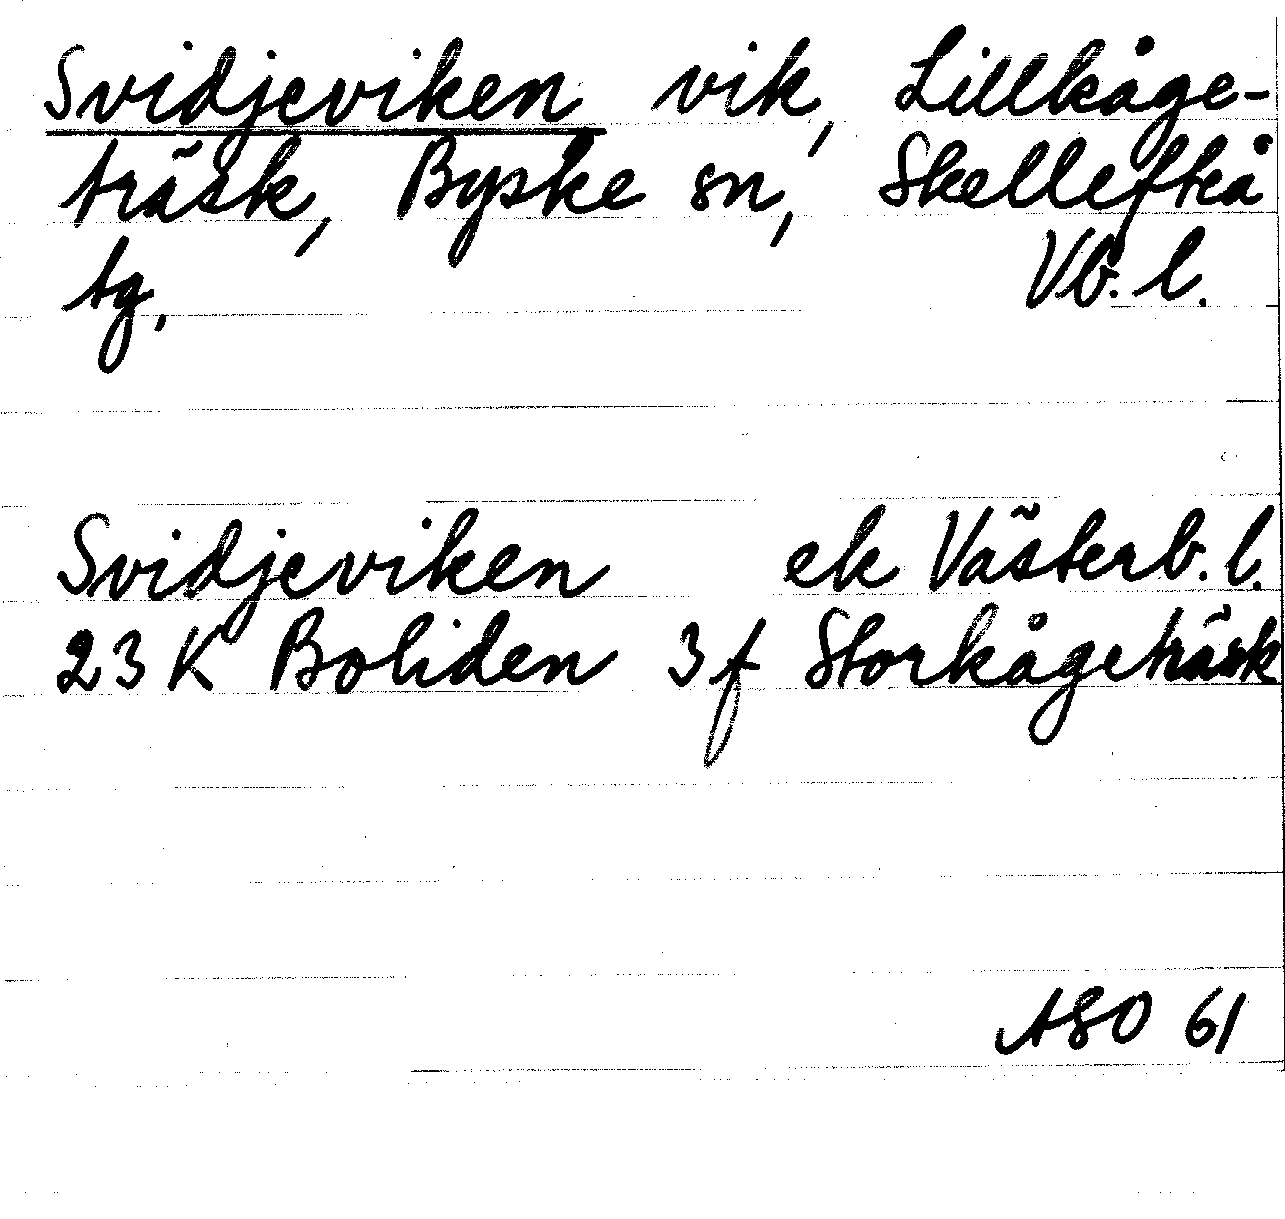 Svidjeviken vik, Lillkåge-
träsk, Byske sn, Skellefteå
tg, Vb. l.
Svidjeviken ek Västerb. l.
23 K Boliden 3 f Storkågeträsk
ASO 61